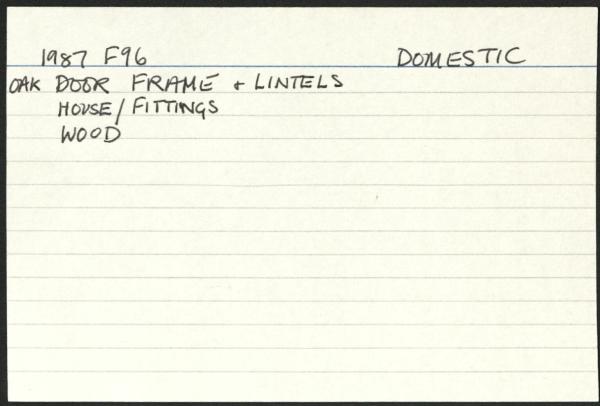 1987 F96 DOMESTIC
OAK DOOR FRAME + LINTELS
HOUSE/FITTINGS
WOOD